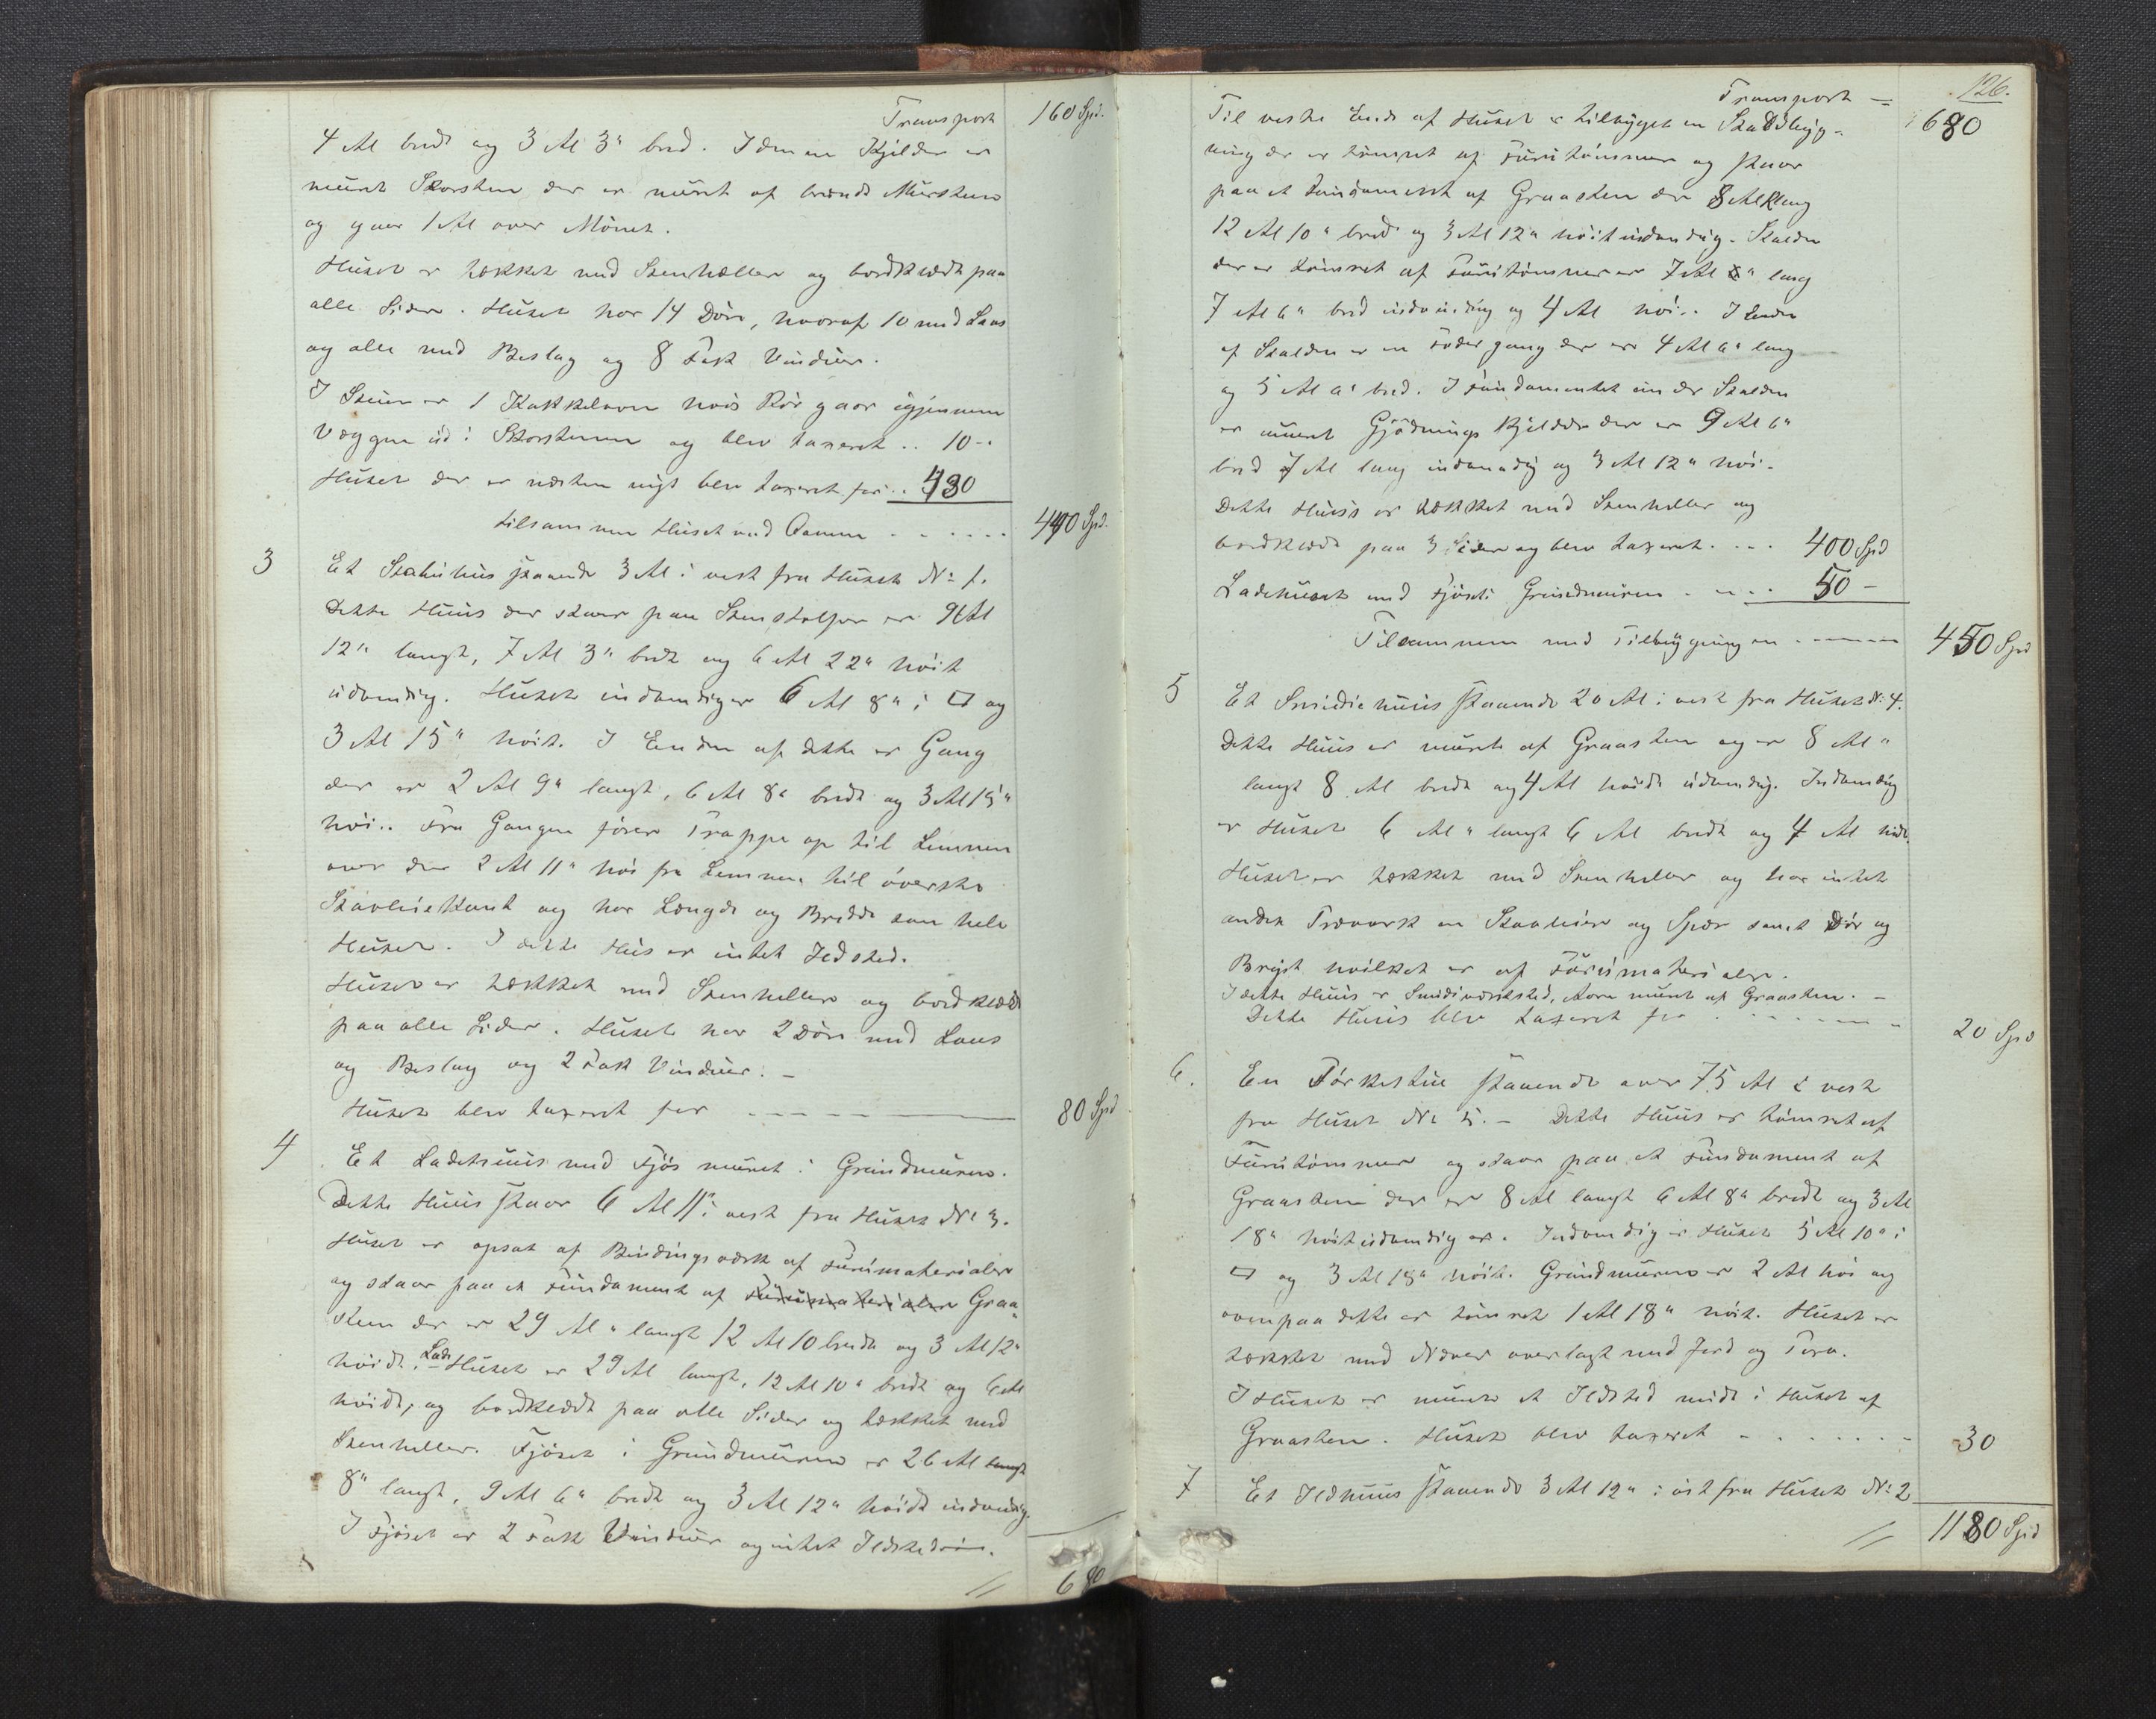 Transport 160 Spd.
4 Al bredt og 3 Al 3" bred. I denne Kjelder er
muret Skorsten der er muret af brændt Mursteen
og gaar 1 Al over Mönet.
Huset er tækket med Steenheller og bordklædt paa
alle Sider. Huset har 14 Döre, hvoraf 10 med Laas
og alle med Beslag og 8 Fak Vinduer.
I Stuen er 1 Kakkelovn hvis Rör gaar igjennem
Væggen ud i Skorstenen og blev taxeret .. 10 -
Huset der er næsten nyt blev taxeret for .. 430
tilsammen Huset med Ovnen - - - - - 440 Spd.
3 Et Stabuhus staaende 3 Al i vest fra Huset No 1.
Dette Huus der staaer paa Steenstolper er 9 Al
12" langt, 7 Al 3" bredt og 6 Al 22" höit
udvendig. Huset indvendig er 6 Al 8" i □ og
3 Al 15" höit. I Enden af dette er Gang
der er 2 Al 9" langt, 6 Al 8" bredt og 3 Al 15"
höi.. Fra Gangen förer Trappe op til Lemmen
over der 2 Al 11" höi fra Lemmen til överste
Stavliekant og har Længde og Bredde som hele
Huset. I dette Hus er intet Ildsted.
Huset er tækket med Steenheller og bordklædt
paa alle Sider. Huset har 2 Döre med Laas
og Beslag og 2 Fak Vinduer. -
Huset blev taxeret for - - - - 80 Spd
4 Et Ladehuus med Fjös muret i Grundmuren.
Dette Huus staar 6 Al 11" i vest fra Huset No 3.
Huset er opsat af Bindingsværk af Furumaterialer
og staaer paa et Fundament af Furumaterialer Graa-
steen der er 29 Al " langt 12 Al 10 bredt og 3 Al 12"
höidt. Lade Huset er 29 Al langt, 12 Al 10" bredt og 6 Al
höidt, og bordklædt paa alle Sider og tækket med
Steenheller. Fjöset i Grundmuren er 26 Al langt
8" langt, 9 Al 6" bredt og 3 Al 12" höidt indvendig.
I Fjöset er 2 Fak Vinduer og intet Ildsted.
// 680
126.
Transport - 680
Til vestre Ende af Huset er tilbygget en Staldbyg-
ning der er tömret af Furutömmer og staaer
paa et Fundament af Graasten der 8 Al lang
12 Al 10" bred og 3 Al 12" höit udvendig. Stalden
der er tömret af Furutömmer er 7 Al " lang
7 Al 6" bred indvendig og 4 Al höi.. I Enden
af Stalden er en Fodergang der er 4 Al 6" lang
og 5 Al 6" bred. I Fundamentet under Stalden
er muret Gjödnings Kjelder der er 9 Al 6"
bred 7 Al lang indvendig og 3 Al 12" höi.
Dette Huus er tækket med Steenheller og
bordklædt paa 3 Sider og blev taxeret - - - 400 Spd
Ladehuset med Fjöset i Grundmuren - - - 50 -
Tilsammen med Tilbygningen - - - - 450 Spd
5 Et Smidiehuus staaende 20 Al i vest fra Huset No 4.
Dette Huus er muret af Graasten og er 8 Al "
langt 8 Al bredt og 4 Al höidt udvendig. Indvendig
er Huset 6 Al " langt 6 Al bredt og 4 Al höidt.
Huset er tækket med Steenheller og har intet
andet Træværk en Stavlier og Sper samt Dör og
Bryst hvilket er af Furumaterialer.
I dette Huus er Smidieværksted, Avre muret af Graasten. -
Dette Huus blev taxeret for - - - - 20 Spd
6. En Törkestue staaende over 75 Al i vest
fra Huset No 5. - Dette Huus er tömret af
Furutömmer og staaer paa et Fundament af
Graasteen der er 8 Al langt 6 Al 8" bredt og 3 Al
18" höit udvendig er. Indvendig er Huset 5 Al 10" i
□ og 3 Al 18" höit. Grundmuren er 2 Al höi og
ovenpaa dette er tömret 1 Al 18" höit. Huset er
tækket med Næver overlagt med Jord og Torv.
I Huset er muret et Ildsted midt i Huset af
Graasten. Huset blev taxeret - - - - - - 30
7 Et Ildhuus staaende 3 Al 12" i öst fra Huset No 2
// 1180 Spd